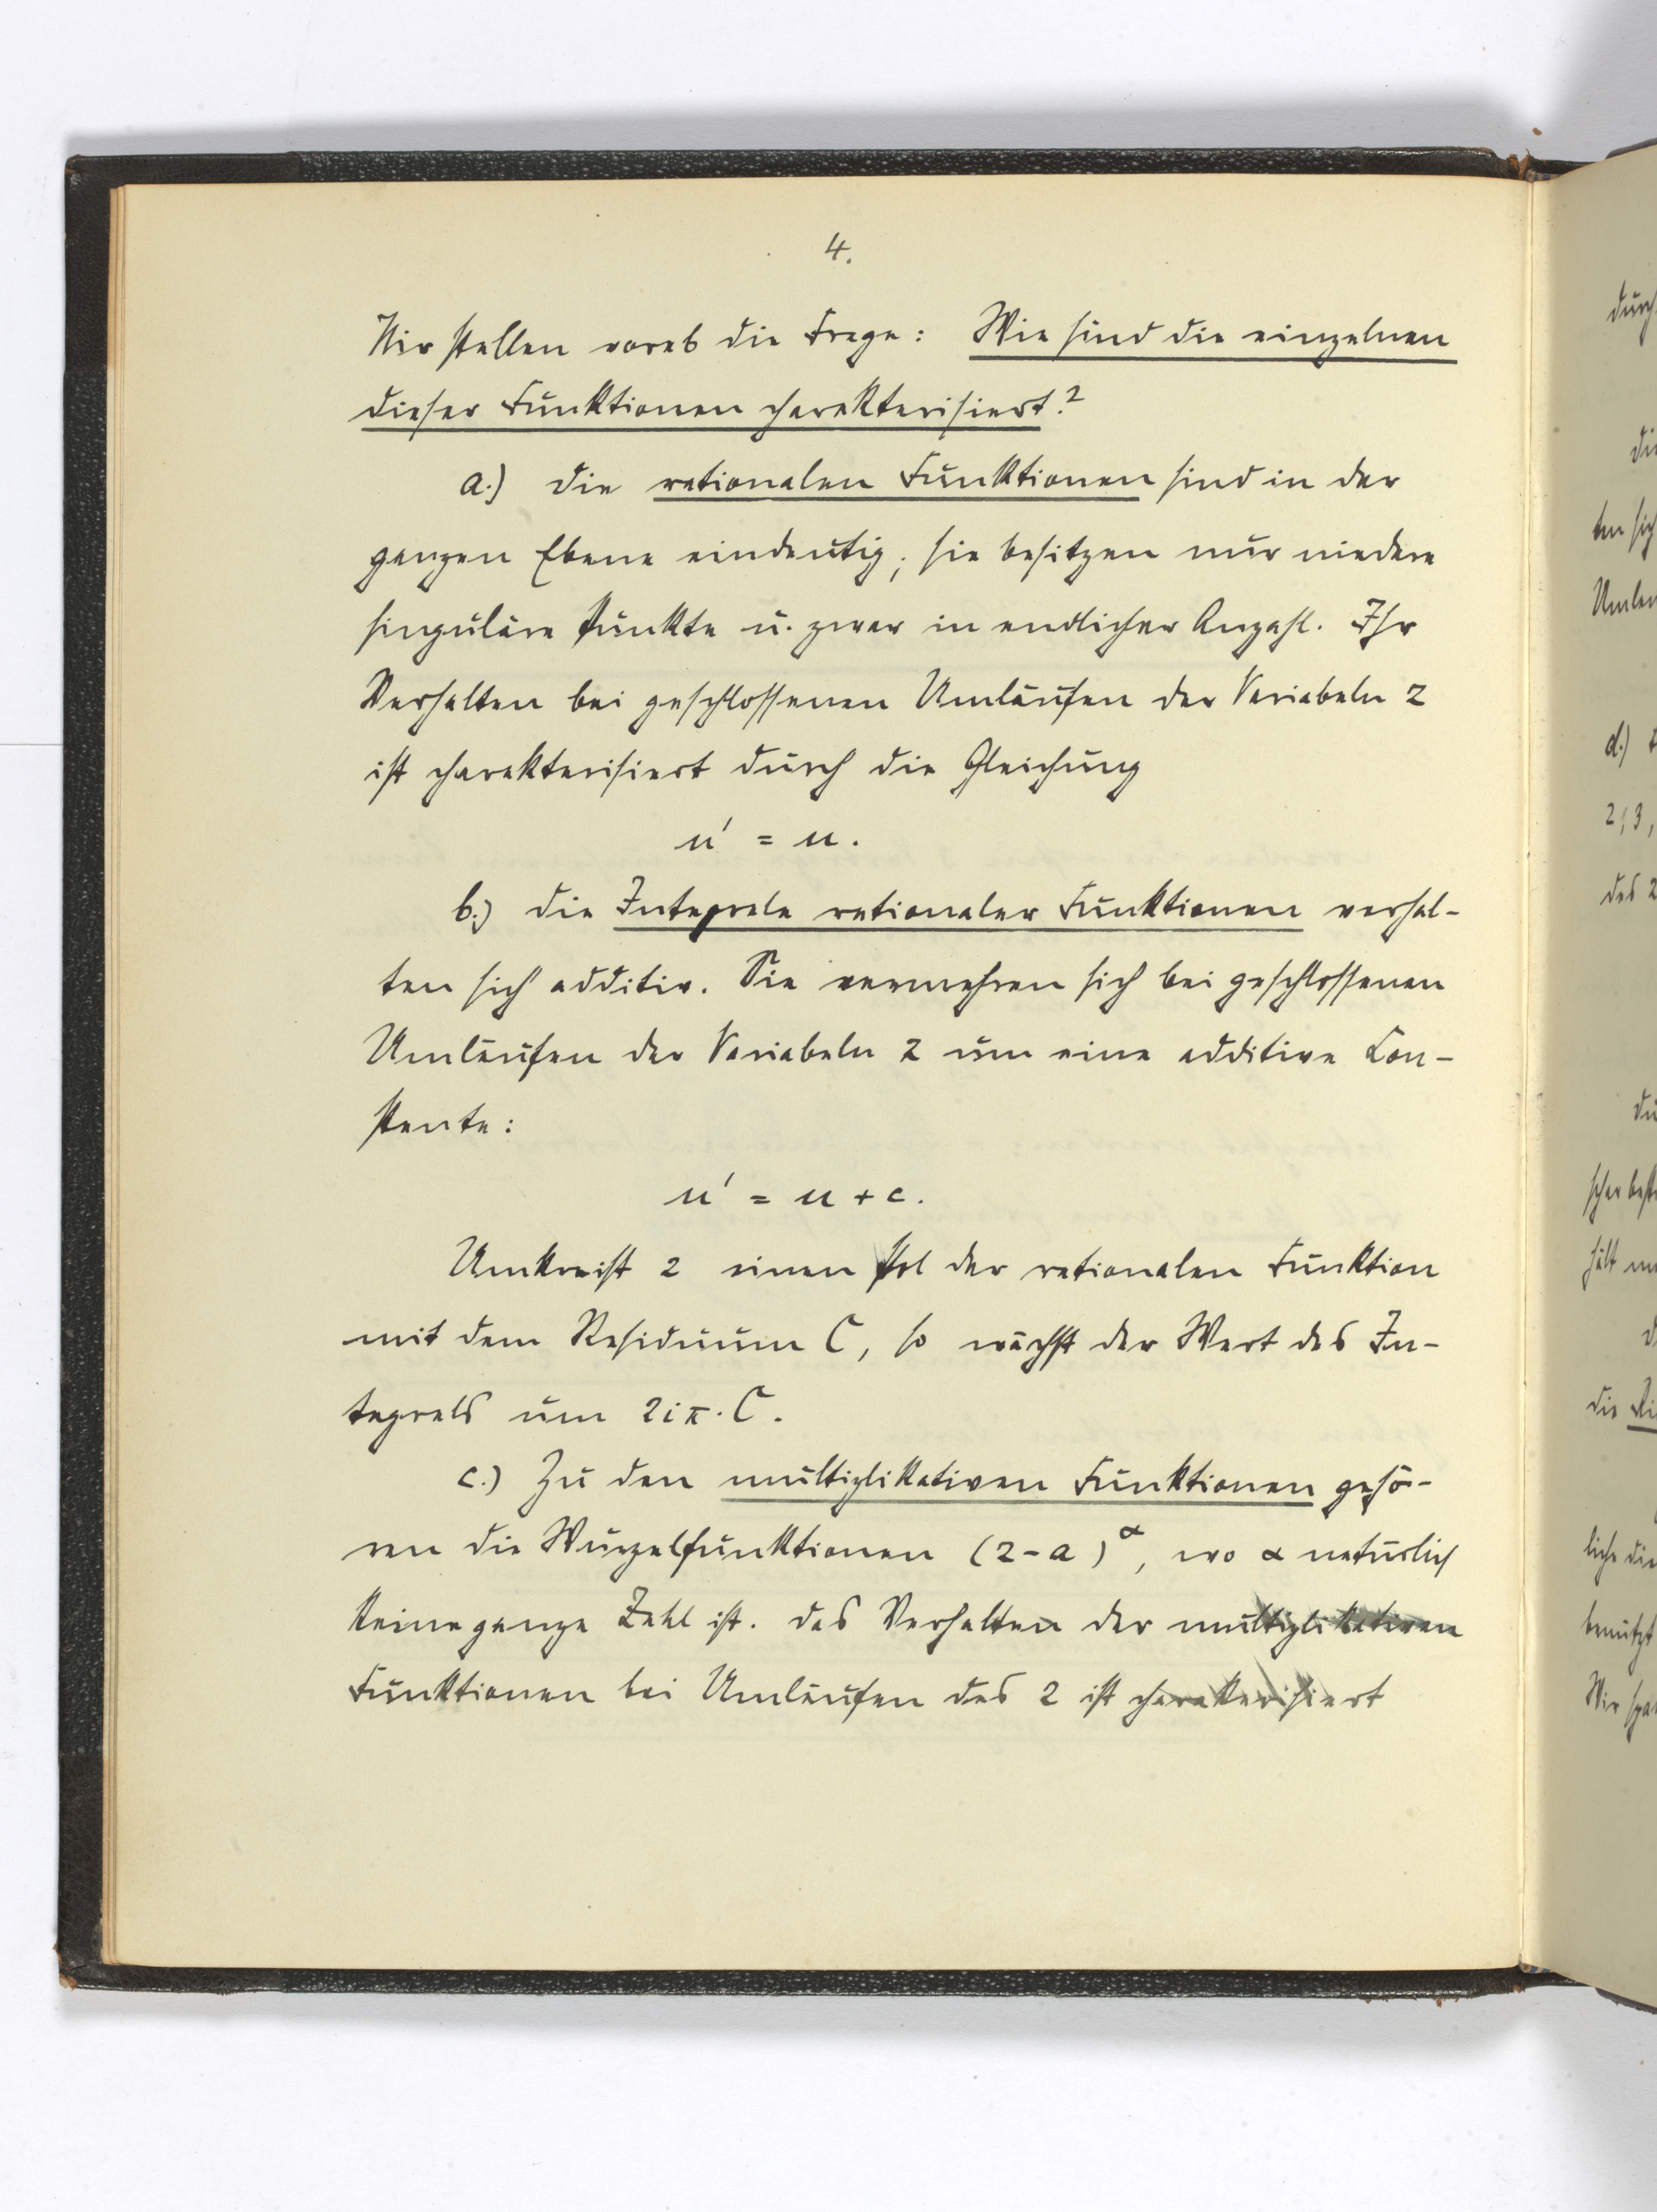 4.
Wir stellen vorab die Frage: Wie sind die einzelnen
dieser Funktionen charakterisiert?
a.) Die rationalen Funktionen sind in der
ganzen Ebene eindeutig; sie besitzen nur niedere
singuläre Punkte u. zwar in endlicher Anzahl. Ihr
Verhalten bei geschlossenen Umläufen der Variabeln z
ist charakterisiert durch die Gleichung
u' = u.
b.) Die Integrale rationaler Funktionen verhal-
ten sich additiv. Sie vermehren sich bei geschlossenen
Umläufen der Variabeln z um eine additive Con-
stante:
u' = u + c.
Umkreist z einen Pol der rationalen Funktion
mit dem Residuum C, so wächst der Wert des In-
tegrals um 2iπ·C.
c.) Zu den multiplikativen Funktionen gehö-
ren die Wurzelfunktionen (z-a)^α, wo α natürlich
keine ganze Zahl ist. Das Verhalten der multiplikativen
Funktionen bei Umläufen des z ist charakterisiert
durch
die
ten sich
d.)
2, 3,
des z
die